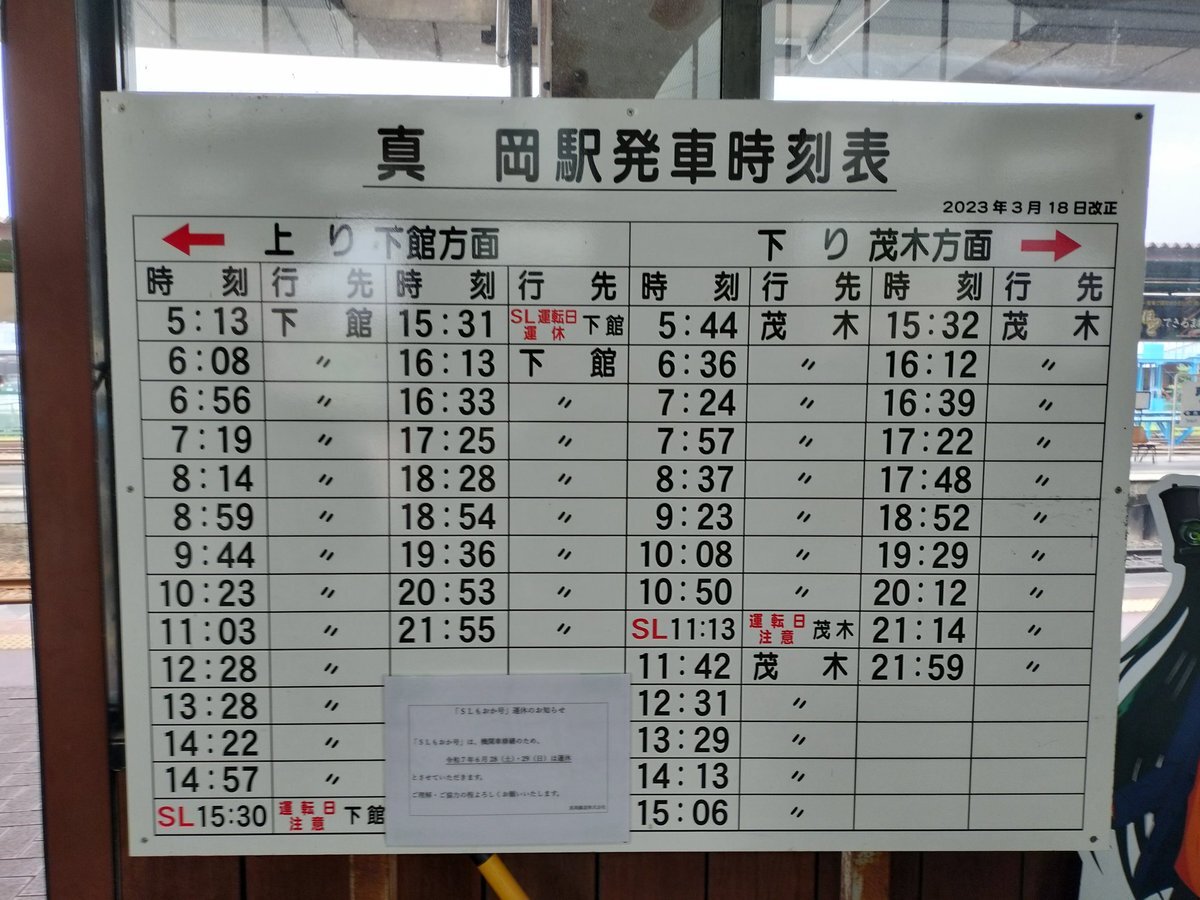 真 岡駅発車時刻表
2023年3月18日改正
上り 下館方面 下り 茂木方面
時刻 行先 時刻 行先 時刻 行先 時刻 行先
5:13 下館 15:31 SL運転日運休 下館 5:44 茂木 15:32 茂木
6:08 〃 16:13 下館 6:36 〃 16:12 〃
6:56 〃 16:33 〃 7:24 〃 16:39 〃
7:19 〃 17:25 〃 7:57 〃 17:22 〃
8:14 〃 18:28 〃 8:37 〃 17:48 〃
8:59 〃 18:54 〃 9:23 〃 18:52 〃
9:44 〃 19:36 〃 10:08 〃 19:29 〃
10:23 〃 20:53 〃 10:50 〃 20:12 〃
11:03 〃 21:55 〃 SL11:13 運転日注意 茂木 21:14 〃
12:28 〃 11:42 茂木 21:59 〃
13:28 〃 12:31 〃
14:22 〃 13:29 〃
14:57 〃 14:13 〃
SL15:30 運転日注意 下館 15:06 〃
「SLもおか号」運休のお知らせ
「SLもおか号」は、機関車修繕のため、
令和7年6月28(土)・29(日)は運休
とさせていただきます。
ご理解・ご協力の程よろしくお願いいたします。
真岡鐵道株式会社